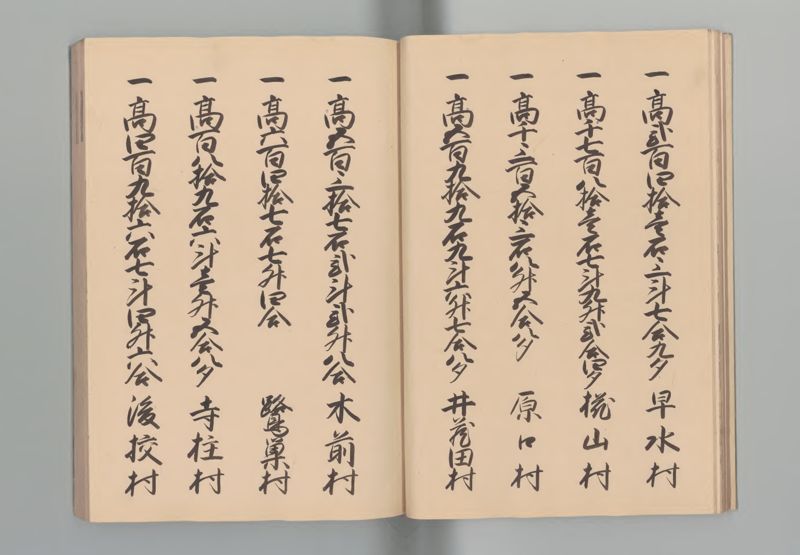 一 高弐百四拾壱石三斗七合九夕 早水村
一 高千七百八拾壱石七斗九升弐合四夕 椛山村
一 高千三百五拾三石八升五合八夕 原口村
一 高五百九拾九石九斗六升七合八夕 井蔵田村
一 高五百三拾七石弐斗弐升八合 水前村
一 高六百四拾七石七升四合 鷺巣村
一 高百八拾九石六斗壱升五合八夕 寺柱村
一 高四百九拾六石七斗四升六合 後挍村